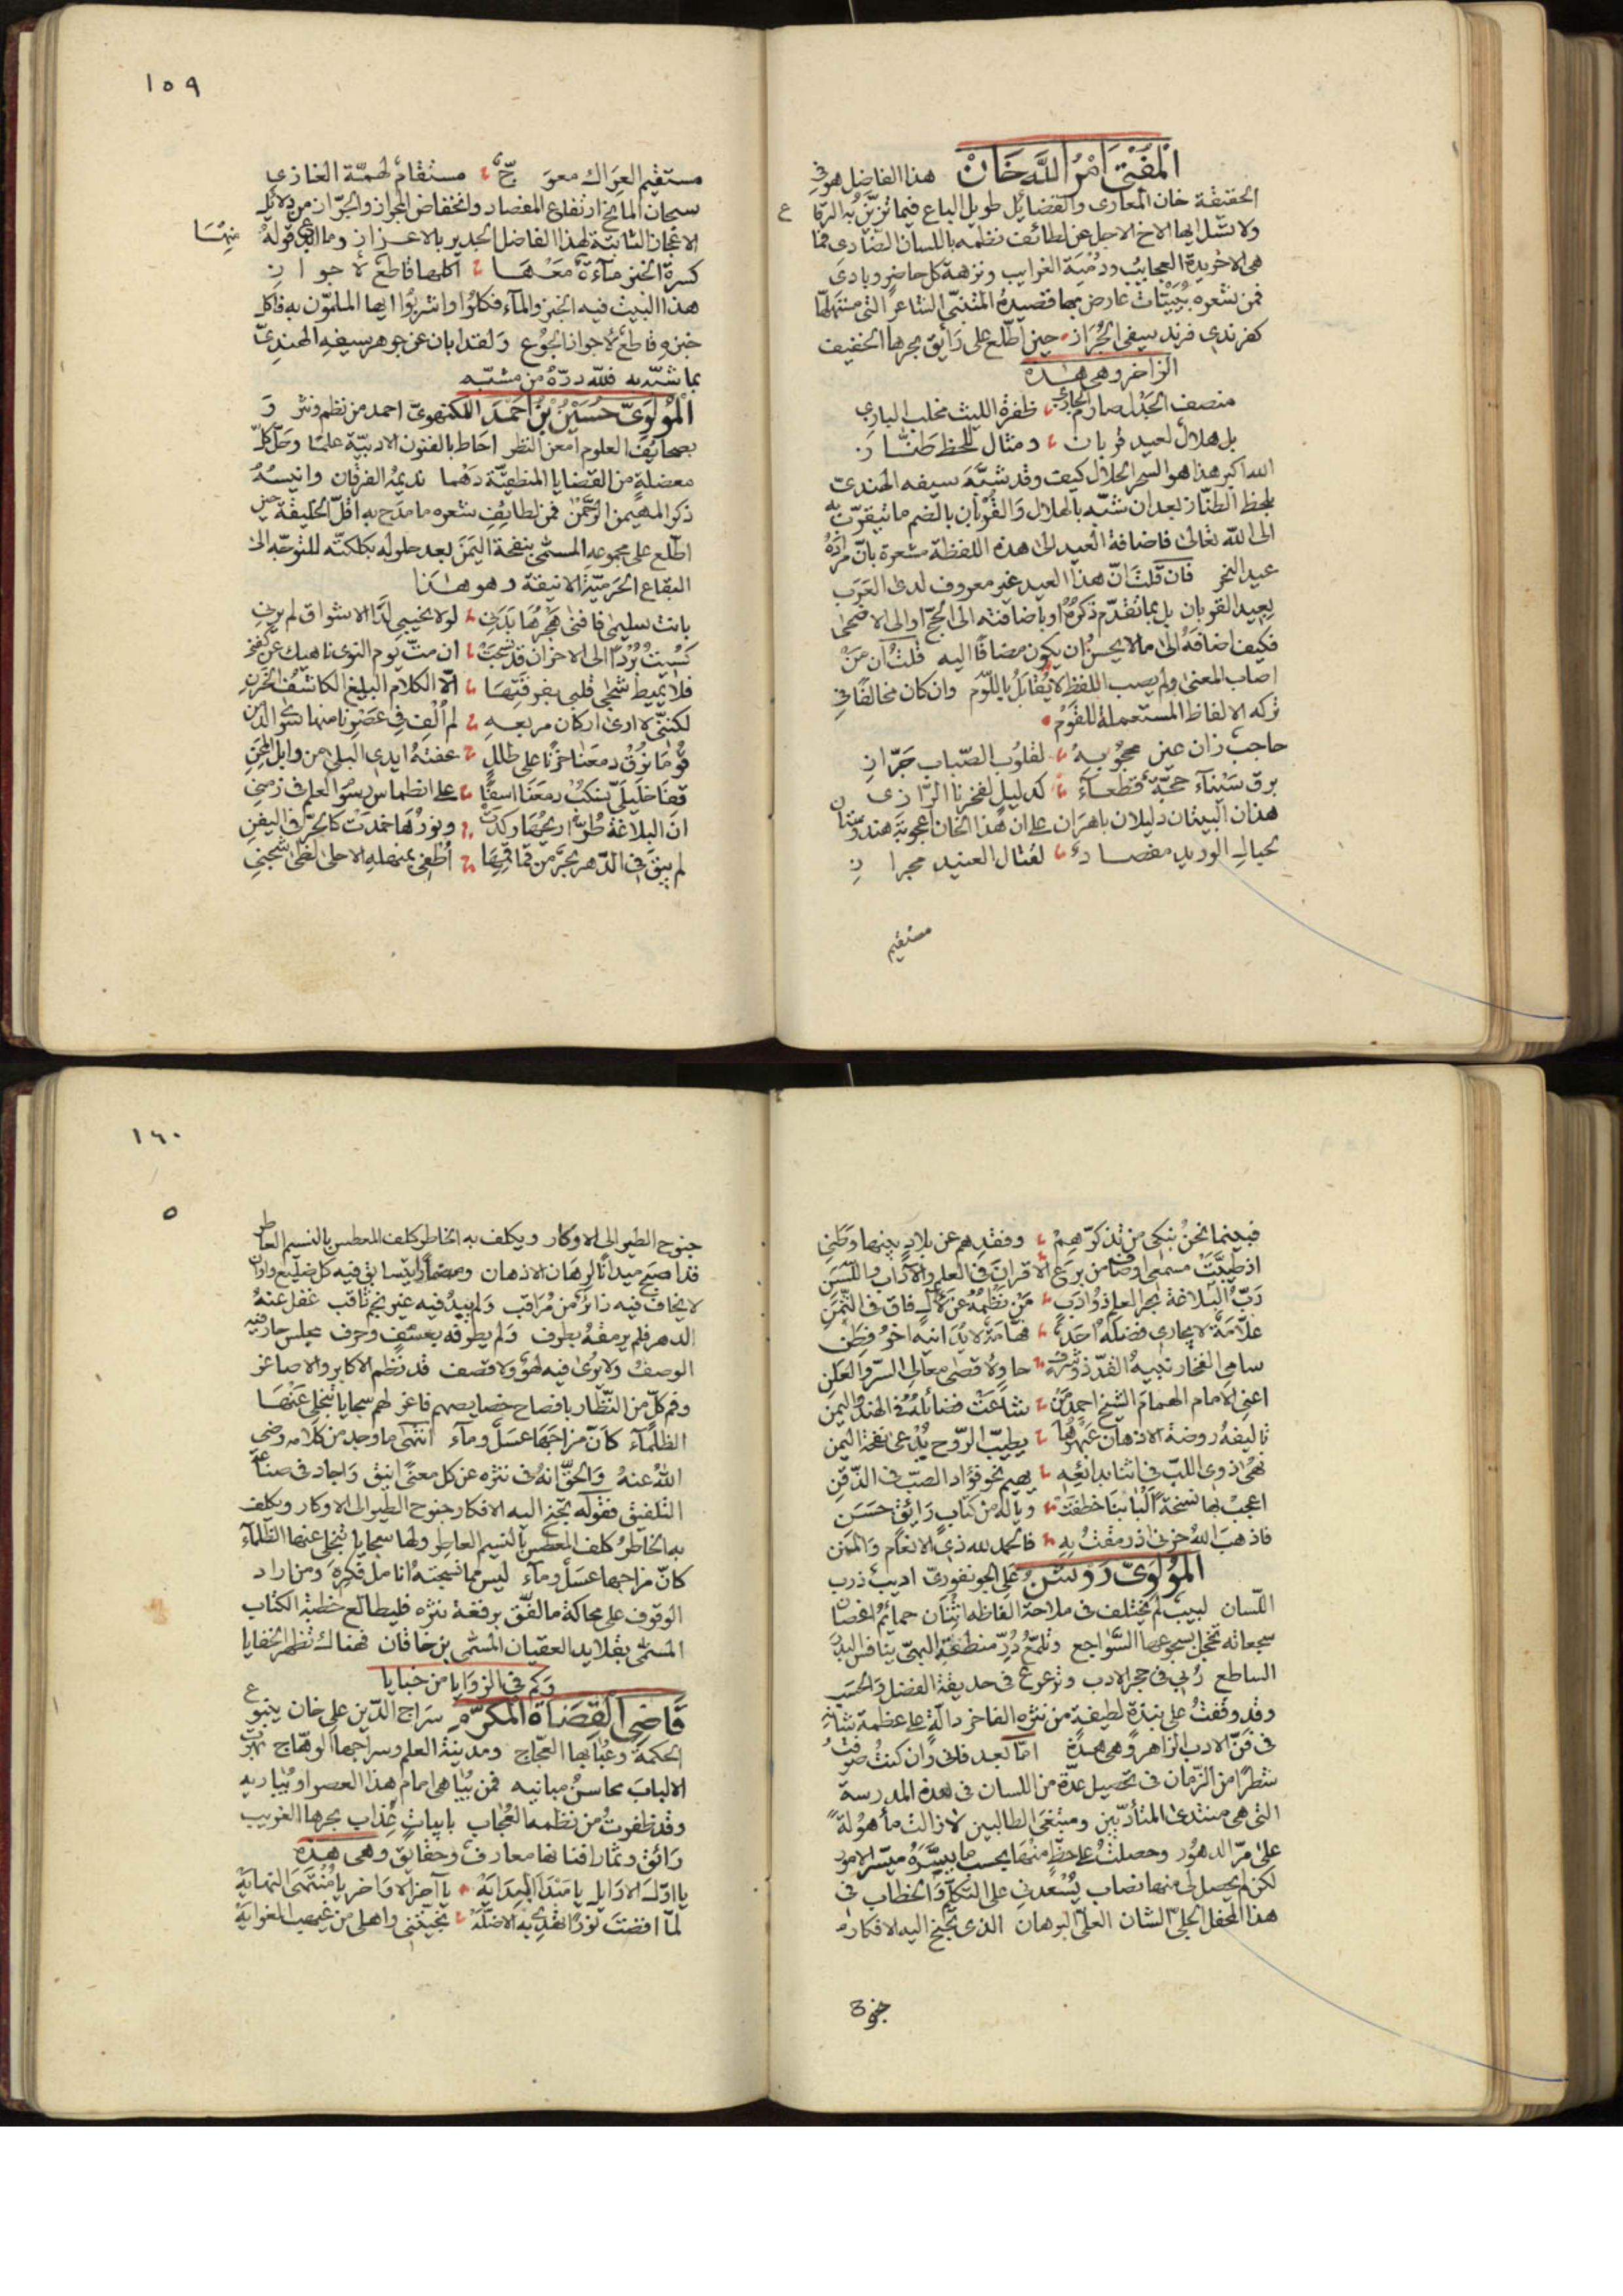 المفتي امر الله خان هذا الفاضل هو في
الحقيقة خان المعارى والفضايل طويل الباع فيما تزيّن به الرقاع
ولا تسل ايها الاخ الاجل عن لطائف نظمه باللسان الضادى فما
هى الا خريدة العجايب ودمية الغرايب ونزهة كل حاضر وبادى
فمن شعره بييتات عارض بها قصيدة المتنبّى الشاعر التى مستهلها
كفرندى فرند سيفى الجراز حين اطلع على رائق بحرها الخفيف
الزاخر وهى هذه
منصف الجدل صارم الحارى ظفرة الليث مخلب البازى
بل هلال لعيد قربان ومثال للحظ طنّاز
الله اكبر هذا هو السحر الحلال كيف وقد شبّه سيفه الهندى
بلحظ الطنّاز بعد ان شبّه بالهلال والقربان بالضم ما تيقرّب به
الى الله تعالى فاضافة العيد الى هذه اللفظة مشعرة بان مراده
عيد النحر فان قلت ان هذا العيد غير معروف لدى العرب
بعيد القربان بل بما تقدّم ذكره او باضافته الى الحج او الى الاضحى
فكيف اضافه الى ما لا يحسن ان يكون مضافا اليه قلت ان من
اصاب المعنى ولم يصب اللفظ لا يقابل باللّوم وان كان مخالفا في
تركه الالفاظ المستعملة للقوم
حاجب زان عين محبوبه لقلوب الصّباب جرّاز
برق سناء حجّة قطعاء كدليل لفخرنا الرّازى
هذان البيتان دليلان باهران على ان هذا الخان اعجوبة هندوستان
لحبال الوريد مفصاد لقتال العنيد مجراز
مستقيم
١٥٩
مستقيم العراك معوجّ مستقام لهمّة الغازي
سبحان المانح ارتفاع المفصاد وانخفاض المجراز والجرّاز من دلايل
الاعجاز الثابتة لهذا الفاضل الجدير بالاعزاز وما ابدع قوله منها
كسرة الخبز ماءة معها اكلها قاطع لاجواز
هذا البيت فيه الخبز والماء فكلوا واشربوا ايها الملمّون به فاكل
خبزه قاطع لاجواز الجوع ولقد ابان عن جوهر سيفه الهندىّ
بما شبّه به فللّه درّه من مشبّه
المولوىّ حسين بن احمد اللكنهوىّ احمد من نظم ونثر و
بصحايف العلوم امعن النظر احاط بالفنون الادبيّة علما وحلّ كلّ
معضلة من القضايا المنطقيّة دهما نديمه الفرقان وانيسه
ذكر المهيمن الرحمن فمن لطايف شعره ما مدح به اقلّ الخليقة حين
اطّلع على مجموعه المسمّى بنفحة اليمن بعد حلوله بكلكتّه للتوجّه الى
البقاع الحرميّة الانيقة وهو هذا
بانت سليمى فافنى هجرها بدنى لولا نحيبى لدا الاشواق لم يرنى
كسيت بردا الى الاحزان قد نسجت ان متّ يوم النوى ناهيك عن كفن
فلا يميط شجى قلبى بفرقتها الّا الكلام البليغ الكاشف الحزن
لكننّى لا ارى اركان مربعه لم الف فى عصرنا منها سوى الدمن
قوما نرق دمعنا حزنا على طلل عفته ايدى البلى من وابل المحن
قفا خليلىّ نسكب دمعنا اسفا على انطماس رسوم العلم فى زمنى
ان البلاغة طرّا ريحها ركدت ونورها خمدت كالجرّ فى اليفن
لم يبق فى الدّهر بحر من قماقمها اطفى بمنهله الاحلى لظى شجنى
فبينما نحن نبكى من تذكّرهم وفقدهم عن بلاد بينها وطنى
اذ طيّبت مسمعى اوصاف من برع الاقران فى العلم والآداب واللّسن
ربّ البلاغة بحر العلم ذو ادب من نظمه عن لآل فاق فى الثّمن
علّامة لا يجارى فضله احد فهّامة لا يدانيه اخو فطن
سامى الفخار نجيه الفذّ ذو شرف حاو لاقصى معالى السرّ والعلن
اعنى الامام الهمام الشيخ احمد من شاعت فضائله فى الهند واليمن
تاليفه روضة الاذهان عبهرها يطيّب الرّوح يدعى نفحة اليمن
نهى اذوى اللبّ فى اثنا بدائعه يهيم نحو فؤاد الصبّ فى الذقن
اعجب بها نسخة البابنا خطفت ويا له من كتاب رائق حسن
فاذهب الله حزنى اذ رمقت به فالحمد لله ذى الانعام والمنن
المولوىّ روشن على الجونفورىّ اديب ذرب
اللّسان لبيب لم يختلف فى ملاحة الفاظه اثنان حمائم اغصان
سجعاته تخجل بسجوعها السّواجع وتلمّع درّ منطقه البهىّ ينافس البدر
الساطع ربى فى حجر الادب وترعرع فى حديقة الفضل والحسب
وقد وقفت على نبذة لطيفة من نثره الفاخر دالّة على عظمة شانه
فى فنّ الادب الزاهر وهى هذه امّا بعد فانى وان كنت صرفت
شطرا من الزّمان فى تحصيل عدّة من اللسان فى هذه المدرسة
التى هى منتدى المتأدّبين ومبتغى الطالبين لا زالت مأهولة
على مرّ الدهور وحصلت على حظّ منها بحسب ما يسّره ميسّر الامور
لكن لم يحصل لى منها نصاب يسعدنى على التكلّم والخطاب فى
هذا المحفل الجلىّ الشان العلىّ البرهان الذى تجنح اليه الافكار
جنوح
١٦٠
جنوح الطير الى الاوكار ويكلف به الخاطر كلف المعطس بالنسيم العاطر
قد اصبح ميدانا لرهان الاذهان ومضمارا يتسابق فيه كل ضليع وان
لا يخاف فيه زائر من مراقب ولم يبد فيه غير نجم ثاقب غفل عنه
الدهر فلم يرمقه بطرف ولم يطرقه بعسف وحرف مجلس حار فيه
الوصف ولا يرى فيه لهو ولا قصف قد نظم الاكابر والاصاغر
وفم كلّ من النّظّار بافصاح خصايصهم فاغر لهم سجايا تنجلى عنها
الظلماء كانّ مزاجها عسل وماء انتهى ما وجد من كلامه رضى
الله عنه والحقّ انه فى نثره عن كل معنى انيق واجاد فى صناعة
التلفيق فقوله تجنح اليه الافكار جنوح الطير الى الاوكار ويكلف
به الخاطر كلف المعطس بالنسيم العاطر ولها سجايا تنجلى عنها الظلماء
كانّ مزاجها عسل وماء ليس مما نسجته انامل فكره ومن اراد
الوقوف على محاكة ما لفّق برقعة نثره فليطالع خطبة الكتاب
المسمّى بقلايد العقيان المسمّى بن خاقان فهناك تظهر الخفايا
وكم فى الزوايا من خبايا
قاضى القضاة المكرّم سراج الدّين على خان ينبوع
الحكمة وعبابها العجّاج ومدينة العلم وسراجها الوهّاج بهرت
الالباب محاسن مبانيه فمن يباهى امام هذا العصر او يباريه
وقد ظفرت من نظمه العجاب بابيات عذاب بحرها الغريب
رائق وثمار افنانها معارف وحقائق وهى هذه
يا اوّل الاوايل يا مبدأ البداية يا آخر الاواخر يا منتهى النهاية
لمّا افضت نورا تهدى به الاضلّه نجيتنى واهلى من غيهب الغواية